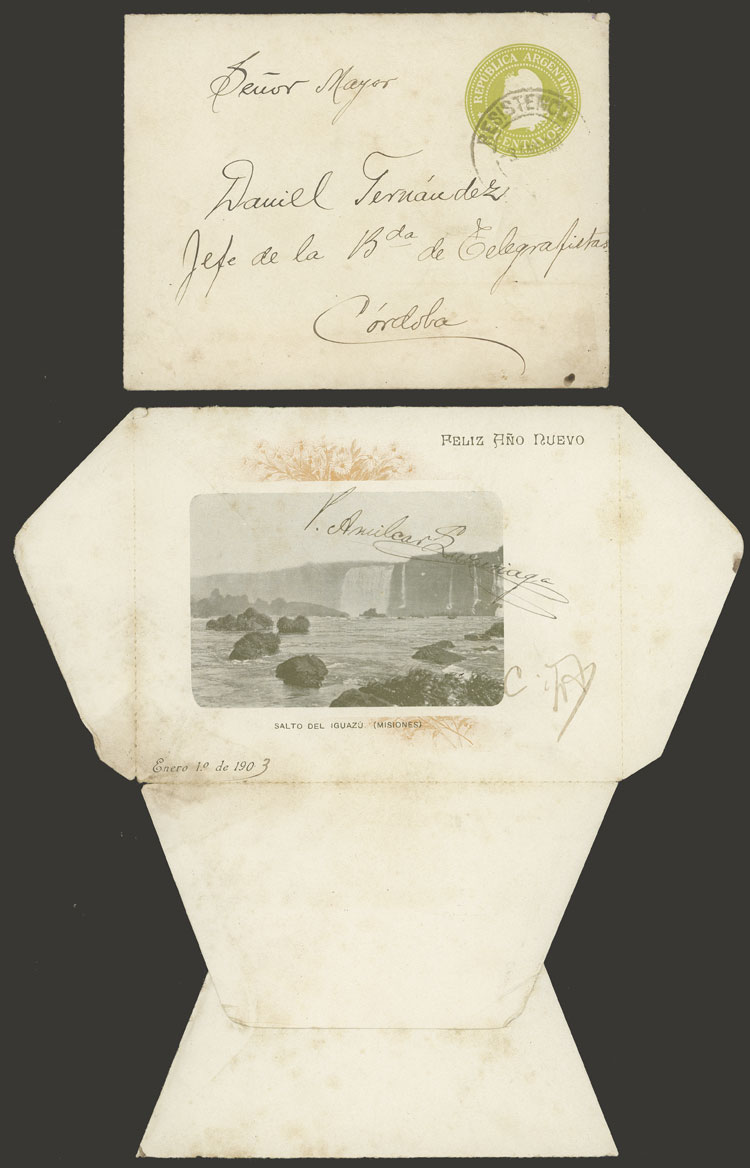 Señor Mayor
REPUBLICA ARGENTINA
CENTAVOS
RESISTENCIA
Daniel Fernández
Jefe de la Bda de Telegrafistas
Córdoba
FELIZ AÑO NUEVO
V. Amilcar
SALTO DEL IGUAZÚ. (MISIONES)
Enero 1.º de 1903